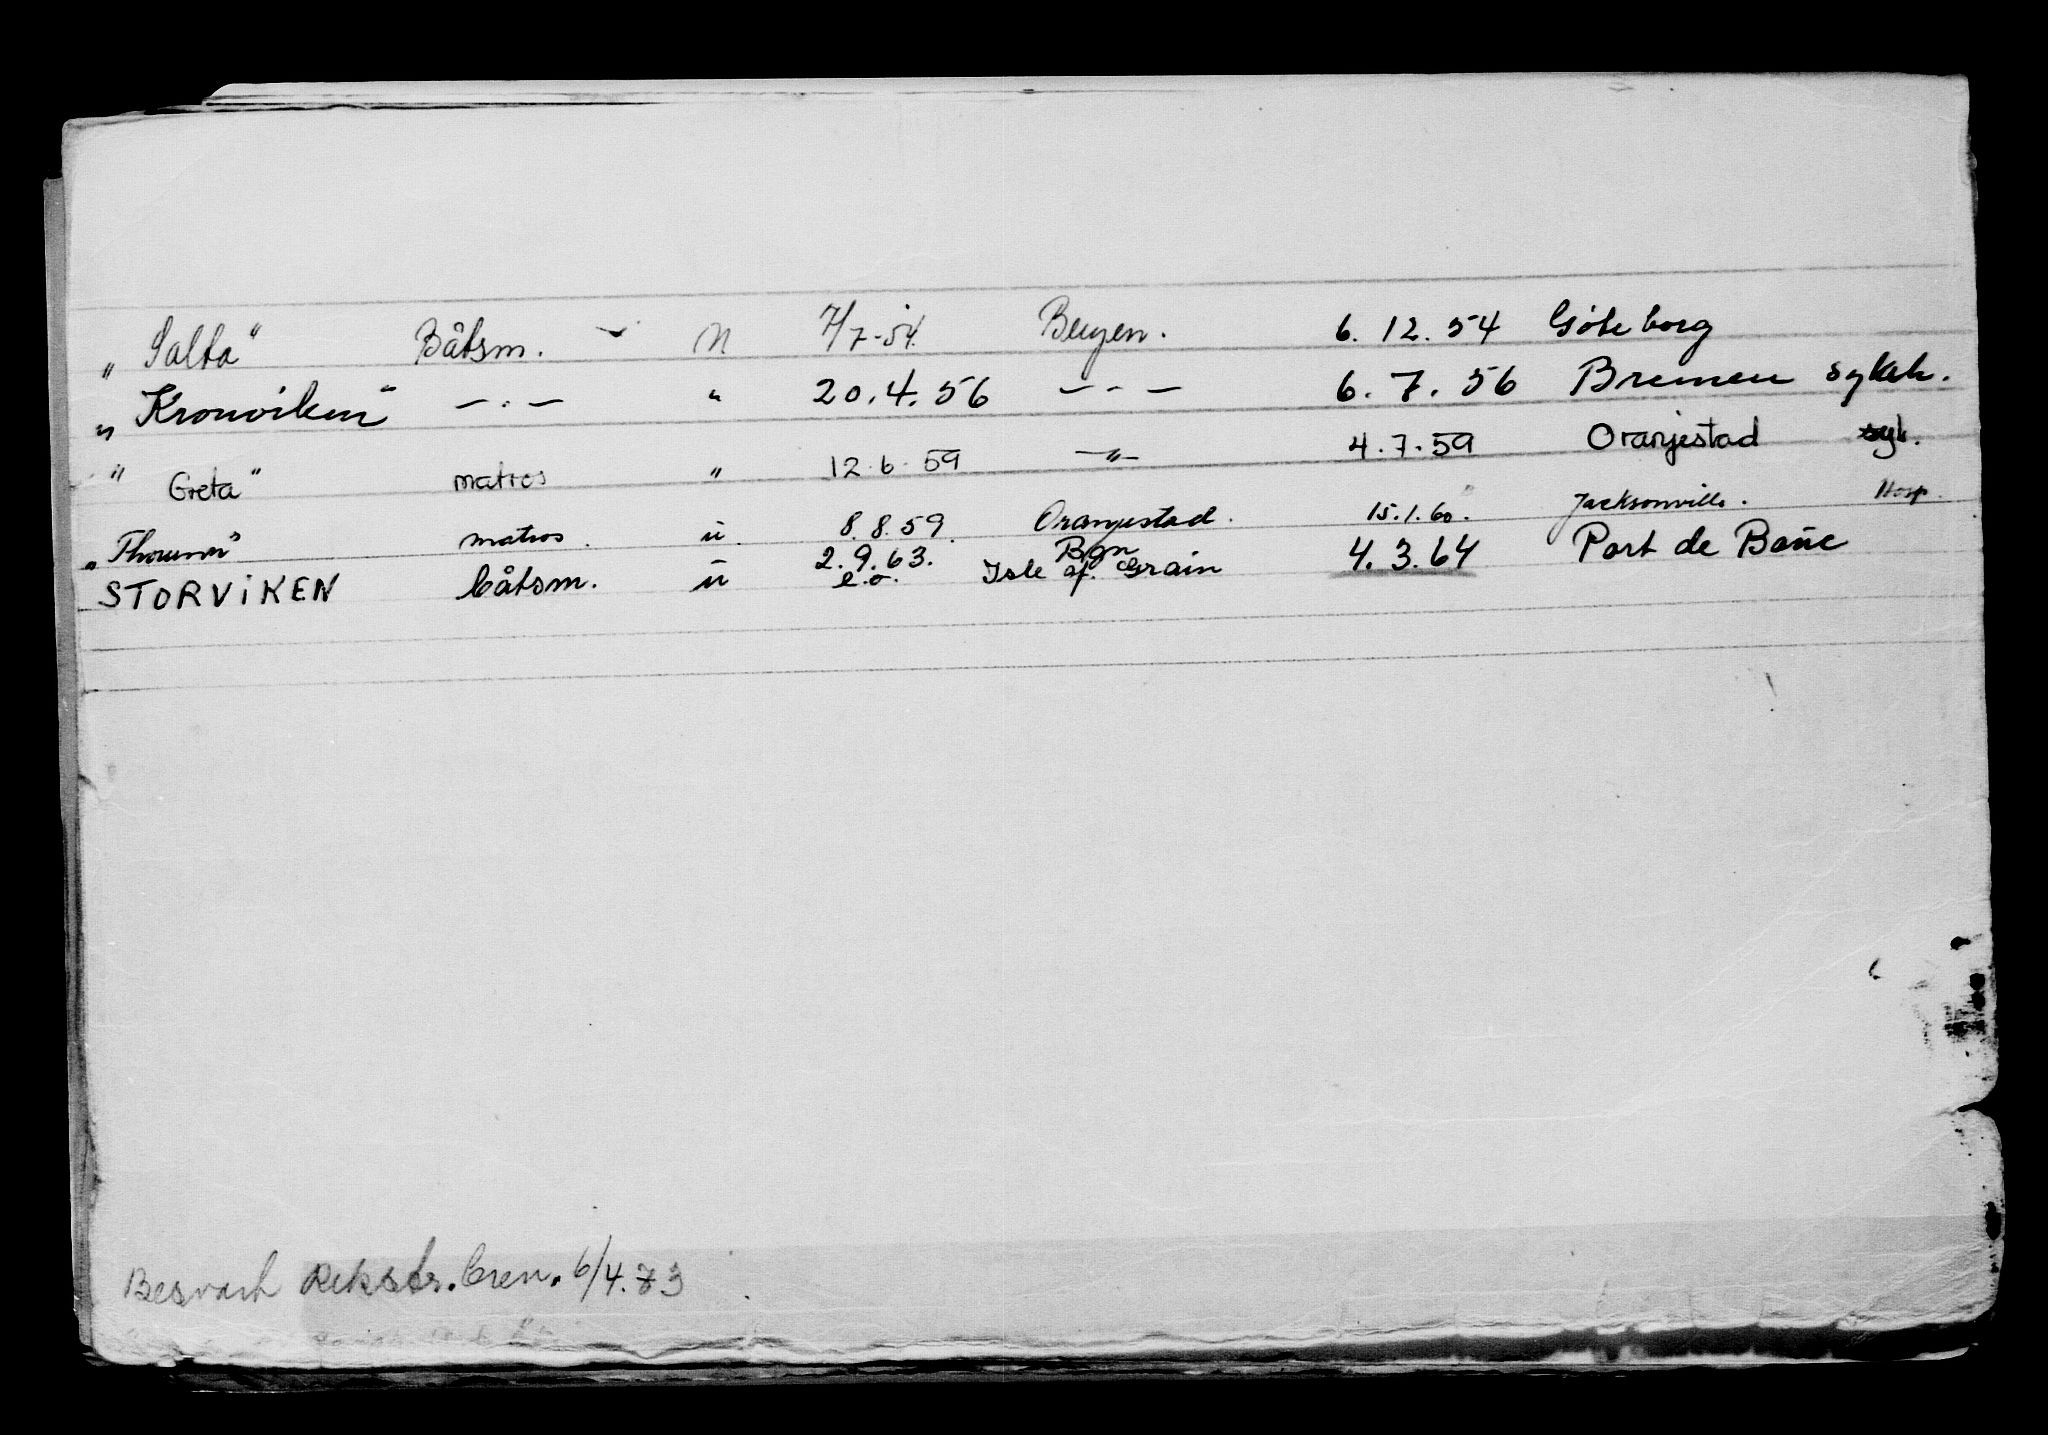 „ Salta" Båtsm. N 7/7-54. Bergen. 6. 12. 54 Göteborg
„ Kronviken" —.— " 20.4.56 — - — 6. 7. 56 Bremen sykeh.
" Greta" matros " 12.6.59 —"— 4.7.59 Oranjestad syk.
matros. " 8.8.59. Oranjestad. 15.1.60. Jacksonville. Hosp.
2.9.63. Bgn
STORVIKEN båtsm. " e.o. Isle of. Grain 4.3.64 Port de Bouc
Besvart Rikstr. Gren. 6/4.73